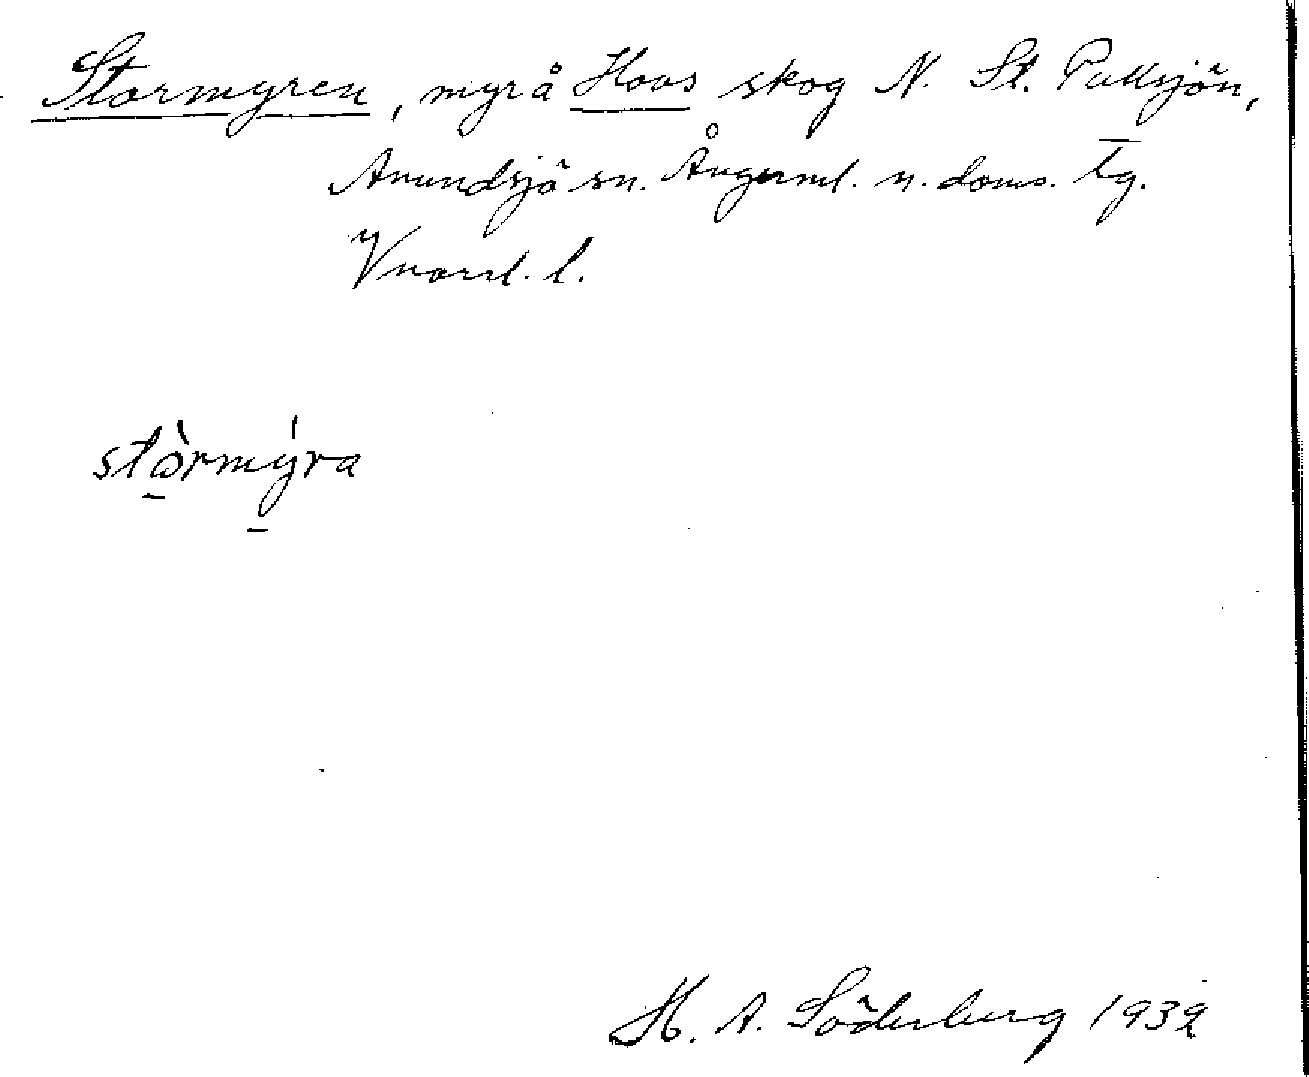 Stormyren, myr å Hoos skog N. St. Pullsjön,
Anundsjö sn. Ångerml. n. doms. tg.
Vnorrl. l.
stòrmýra
H. A. Söderberg 1932